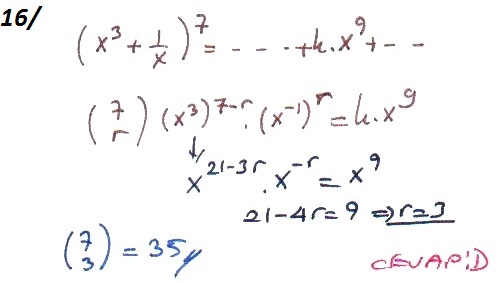 16/
(x³ + 1/x)⁷ = - - - - + k.x⁹ + - -
(7 r) (x³)⁷⁻ʳ . (x⁻¹)ʳ = k.x⁹
↓
x²¹⁻³ʳ . x⁻ʳ = x⁹
21-4r=9 ⇒ r=3
(7 3) = 35//
CEVAP:D